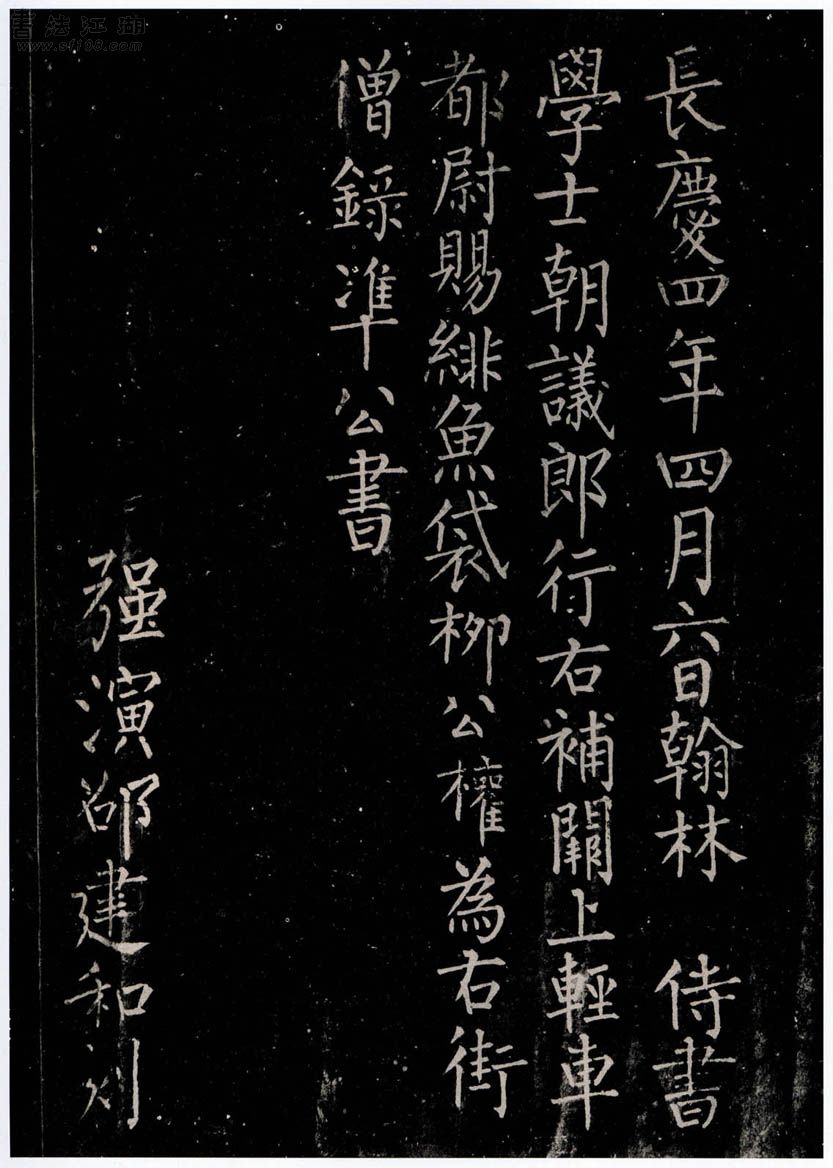 長慶四年四月六日翰林 侍書
學士朝議郎行右補闕上輕車
都尉賜緋魚袋柳公權為右街
僧錄準公書
强演邵建和刻
書法江湖
www.sf108.com